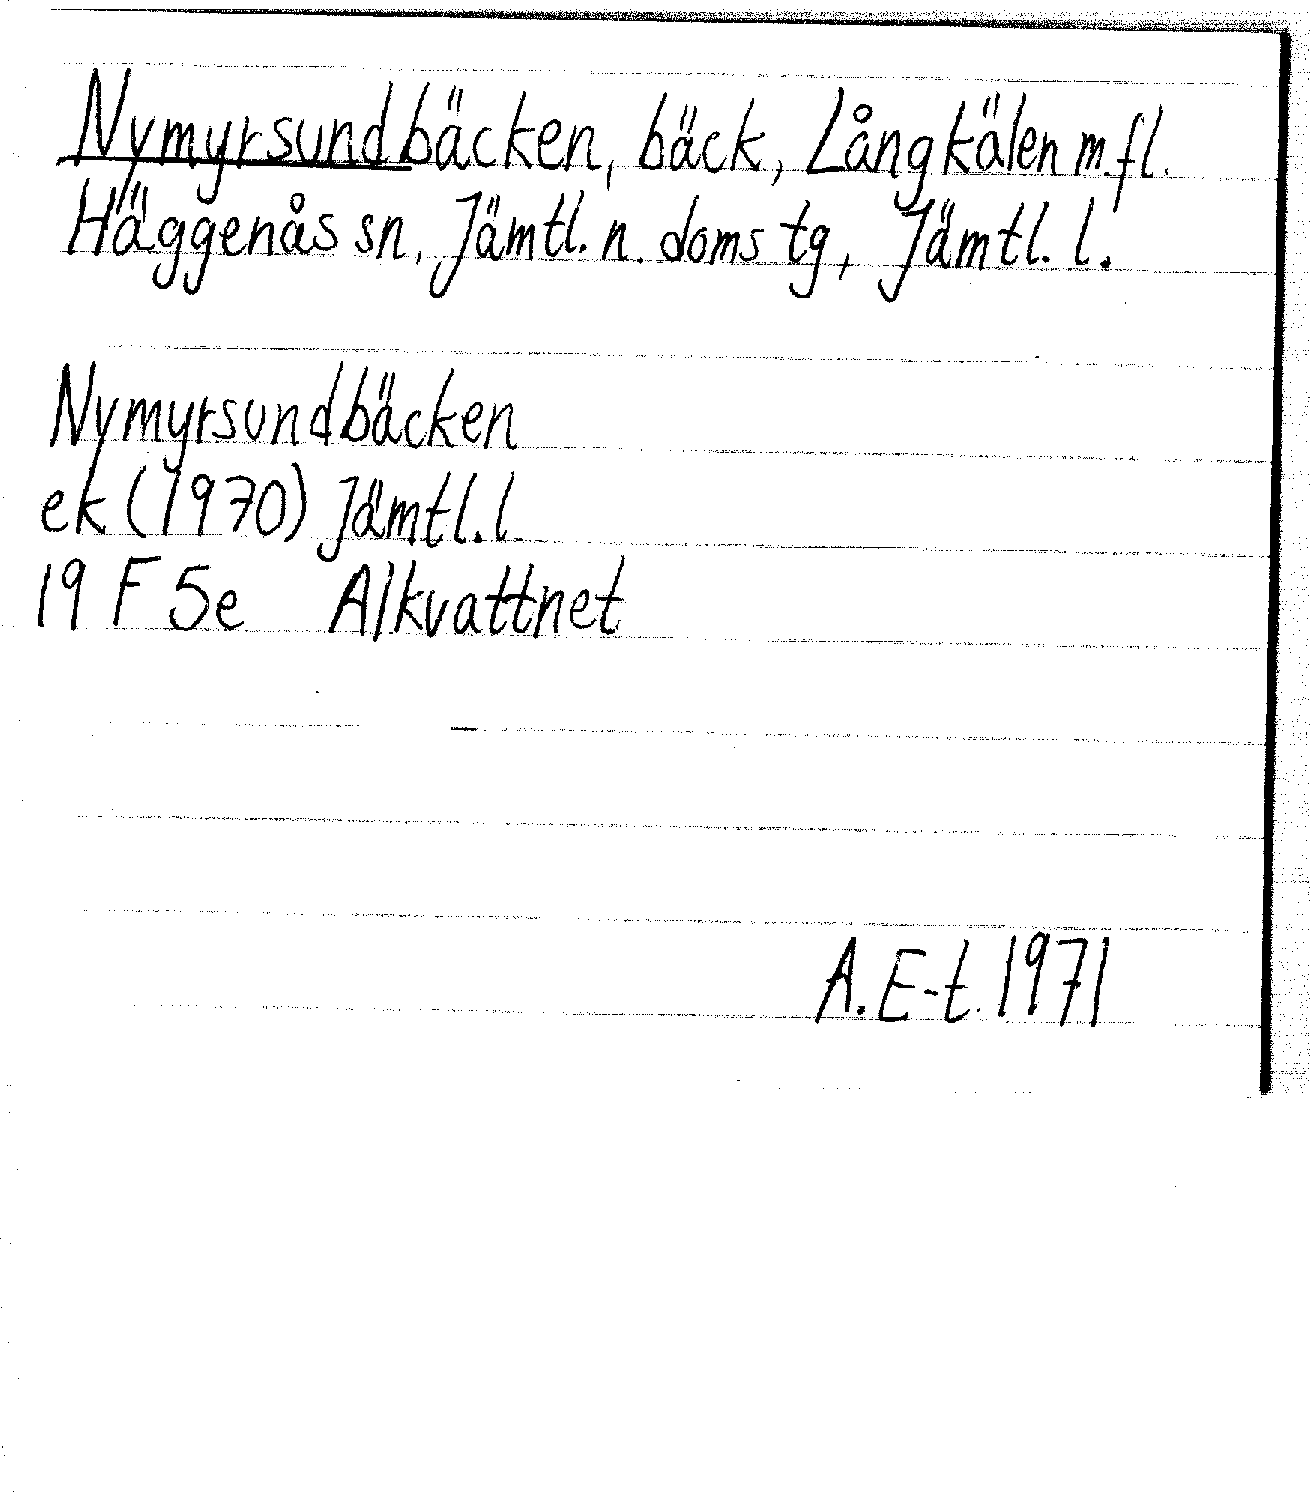 Nymyrsundbäcken, bäck, Långkälen m.fl.
Häggenås sn, Jämtl. n. doms tg, Jämtl. l.
Nymyrsundbäcken
ek (1970) Jämtl. l.
19 F 5e Alkvattnet
A. E-t. 1971